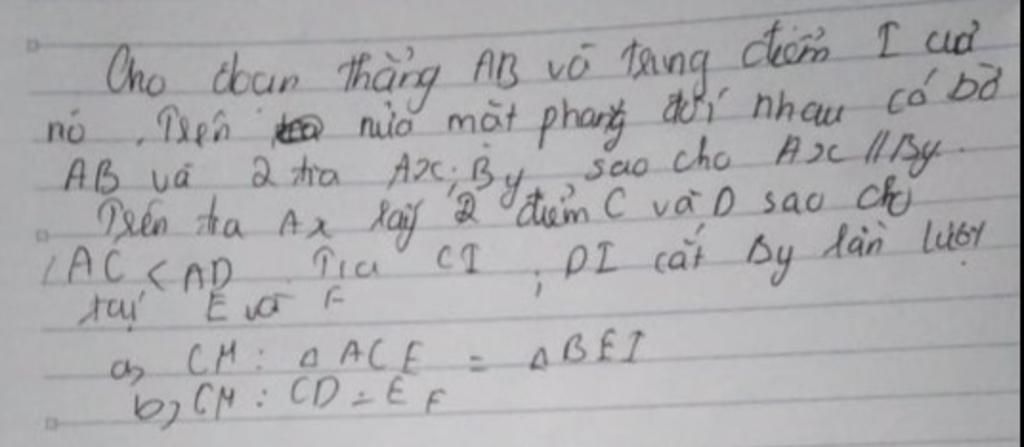 Cho đoạn thẳng AB vẽ trung điểm I của
nó. Trên nửa mặt phẳng đối nhau có bờ
AB vẽ 2 tia Ax; By sao cho Ax // By.
Trên tia Ax lấy 2 điểm C và D sao cho
AC < AD Tia CI ; DI cắt By lần lượt
tại E và F
a, CM: Δ ACE = Δ BEI
b, CM: CD = EF